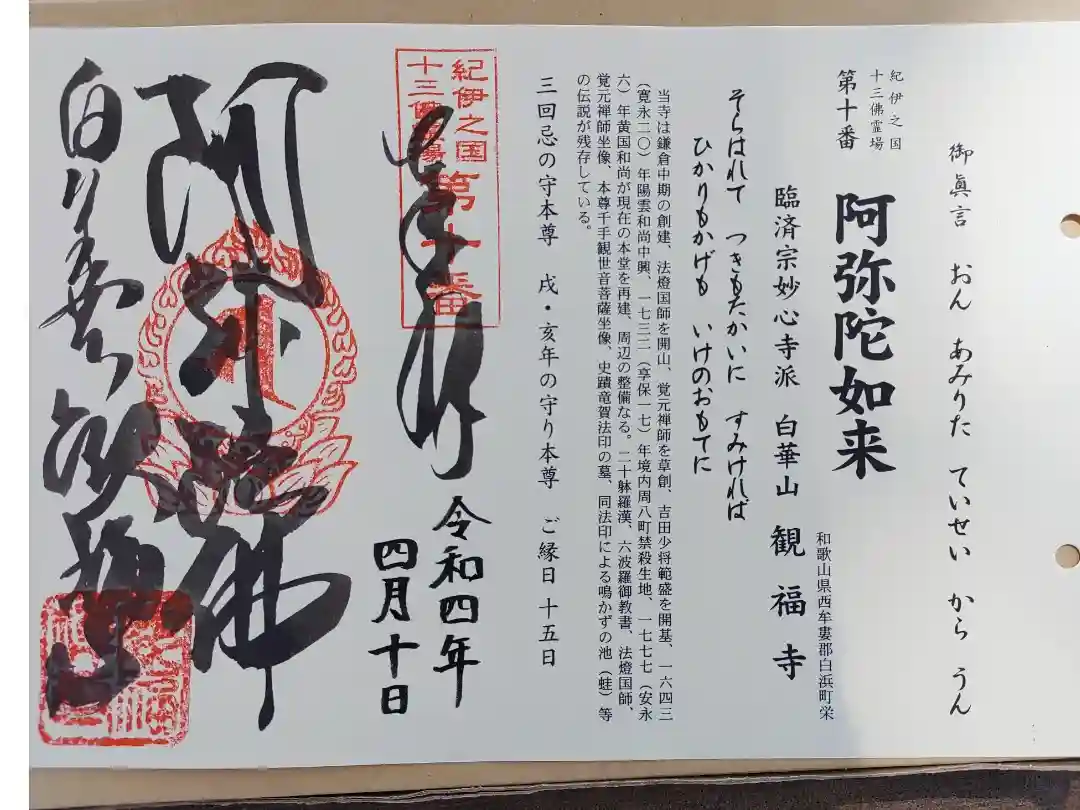 御眞言 おん あみりた ていせい から うん
紀伊之国
十三佛霊場
第十番 阿弥陀如来
和歌山県西牟婁郡白浜町栄
臨済宗妙心寺派 白華山 観福寺
そらはれて つきもたかいに すみければ
ひかりもかげも いけのおもてに
当寺は鎌倉中期の創建、法燈国師を開山、覚元禅師を草創、吉田少将範盛を開基、一六四三
(寛永二〇)年陽雲和尚中興、一七三二(享保一七)年境内周八町禁殺生地、一七七七(安永
六)年黄国和尚が現在の本堂を再建、周辺の整備なる。二十躰羅漢、六波羅御教書、法燈国師、
覚元禅師坐像、本尊千手観世音菩薩坐像、史蹟竜賀法印の墓、同法印による鳴かずの池(蛙)等
の伝説が残存している。
三回忌の守本尊 戌・亥年の守り本尊 ご縁日 十五日
紀伊之国
十三佛霊場
第十番
奉拝
令和四年
四月十日
阿弥陀佛
白華山 観福寺